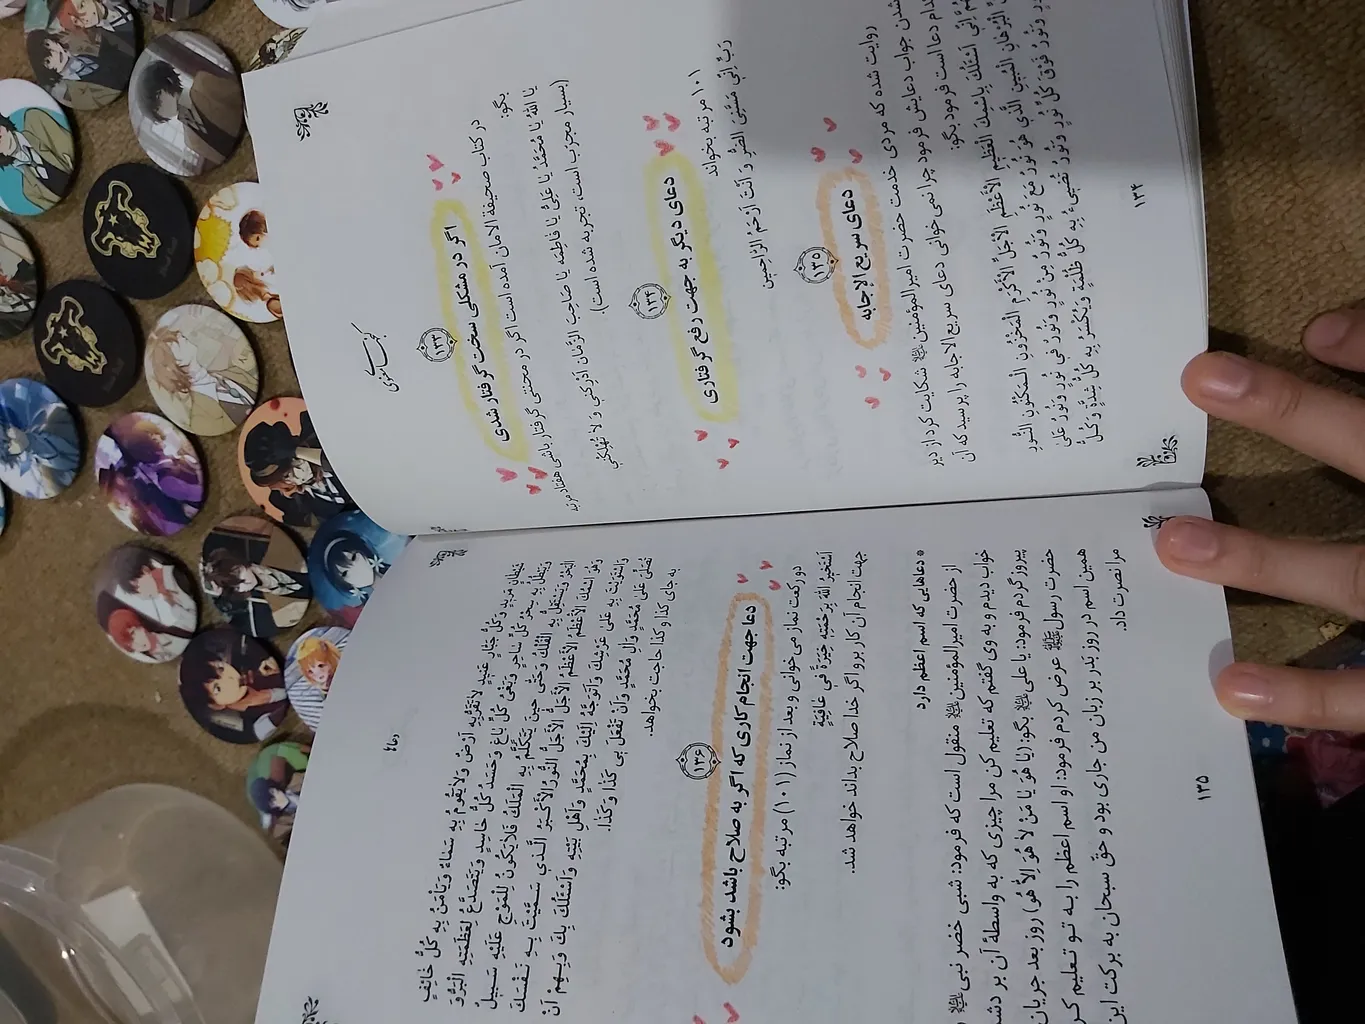 ۱۳۳
اگر در مشکلی سخت گرفتار شدی
در کتاب صحیفة الامان آمده است اگر در محنتی گرفتار باشی هفتاد مرتبه
بگو:
یا اللهُ یا مُحَمَّدُ یا عَلِیُّ یا فاطِمَه یا صاحِبَ الزَّمانِ اَدْرِکْنی وَ لا تُهْلِکْنی
(بسیار مجرّب است، تجربه شده است).
۱۳۴
دعای دیگر به جهت رفع گرفتاری
۱۰۱ مرتبه بخواند
رَبِّ إِنّی مَسَّنِیَ الضُّرُّ وَ أَنْتَ أَرْحَمُ الرَّاحِمِینَ
۱۳۵
دعای سریع الاجابه
روایت شده که مردی خدمت حضرت امیرالمؤمنین شکایت کرد از دیر
شدن جواب دعایش فرمود چرا نمی خوانی دعای سریع الاجابه را پرسید که آن
کدام دعا است فرمود بگو:
اِنّی اَسْئَلُكَ بِاسْمِكَ الْعَظیمِ الْاَعْظَمِ الْاَجَلِّ الْاَکْرَمِ الْمَخْزُونِ الْمَکْنُونِ النُّورِ
الْبُرْهانِ الْمُبینِ الَّذی هُوَ نُورٌ مَعَ نُورٍ وَنُورٌ مِنْ نُورٍ وَنُورٌ فی نُورٍ وَنُورٌ عَلی
وَنُورٌ فَوْقَ کُلِّ نُورٍ وَنُورٌ تُضیءُ بِهِ کُلُّ ظُلْمَةٍ وَیُکْسَرُ بِهِ کُلُّ شِدَّةٍ وَ کُلُّ
۱۳۴
دعاها
شَیْطانٍ مَریدٍ وَکُلُّ جَبّارٍ عَنیدٍ لاتَقَرُّبِهِ اَرْضٌ وَلایَقُومُ بِهِ سَماءٌ وَیَأْمَنُ بِهِ کُلُّ خائِفٍ
وَیَبْطُلُ بِهِ سِحْرُ کُلِّ ساحِرٍ وَبَغْیُ کُلِّ باغٍ وَحَسَدُ کُلِّ حاسِدٍ وَیَتَصَدَّعُ لِعَظَمَتِهِ الْبَرُّوَ
الْبَحْرُ وَیَسْتَقِلُّ بِهِ الْفُلْكُ وَحَتّی حینَ یَتَکَلَّمُ بِهِ الْمَلَكُ فَلایَکُونُ لِلْمَوْجِ عَلَیْهِ سَبیلٌ
وَهُوَ اسْمُكَ الْاَعْظَمُ الْاَعْظَمُ الْاَجَلُّ الْاَجَلُّ النُّورُ الْاَکْبَرُ الَّذی سَمَّیْتَ بِهِ نَفْسَكَ
وَاسْتَوَیْتَ بِهِ عَلی عَرْشِكَ وَاَتَوَجَّهُ اِلَیْكَ بِمُحَمَّدٍ وَاَهْلِ بَیْتِهِ وَاَسْئَلُكَ بِكَ وَبِهِمْ اَنْ
تُصَلِّیَ عَلی مُحَمَّدٍ وَالِ مُحَمَّدٍ وَاَنْ تَفْعَلَ بی کَذا وَکَذا.
به جای کذا و کذا حاجت بخواهد.
۱۳۶
دعا جهت انجام کاری که اگر به صلاح باشد بشود
دو رکعت نماز می خوانی و بعد از نماز (۱۰۱) مرتبه بگو:
اَسْتَخیرُ اللهَ بِرَحْمَتِهِ خِیَرَةً فی عافِیَةٍ
جهت انجام آن کار برو اگر خدا صلاح بداند خواهد شد.
* دعاهایی که اسم اعظم دارد
از حضرت امیرالمؤمنین منقول است که فرمود: شبی خضر نبی
خواب دیدم و به وی گفتم که تعلیم کن مرا چیزی که به واسطهٔ آن بر
پیروز گردم فرمود: یا علی بگو: (یا هُوَ یا مَنْ لاهُوَ اِلاّ هُوَ) روز بعد جریان
حضرت رسول عرض کردم فرمود: او اسم اعظم را به تو تعلیم
همین اسم در روز بدر بر زبان من جاری بود و حق سبحان به برکت این
مرا نصرت داد.
۱۳۵